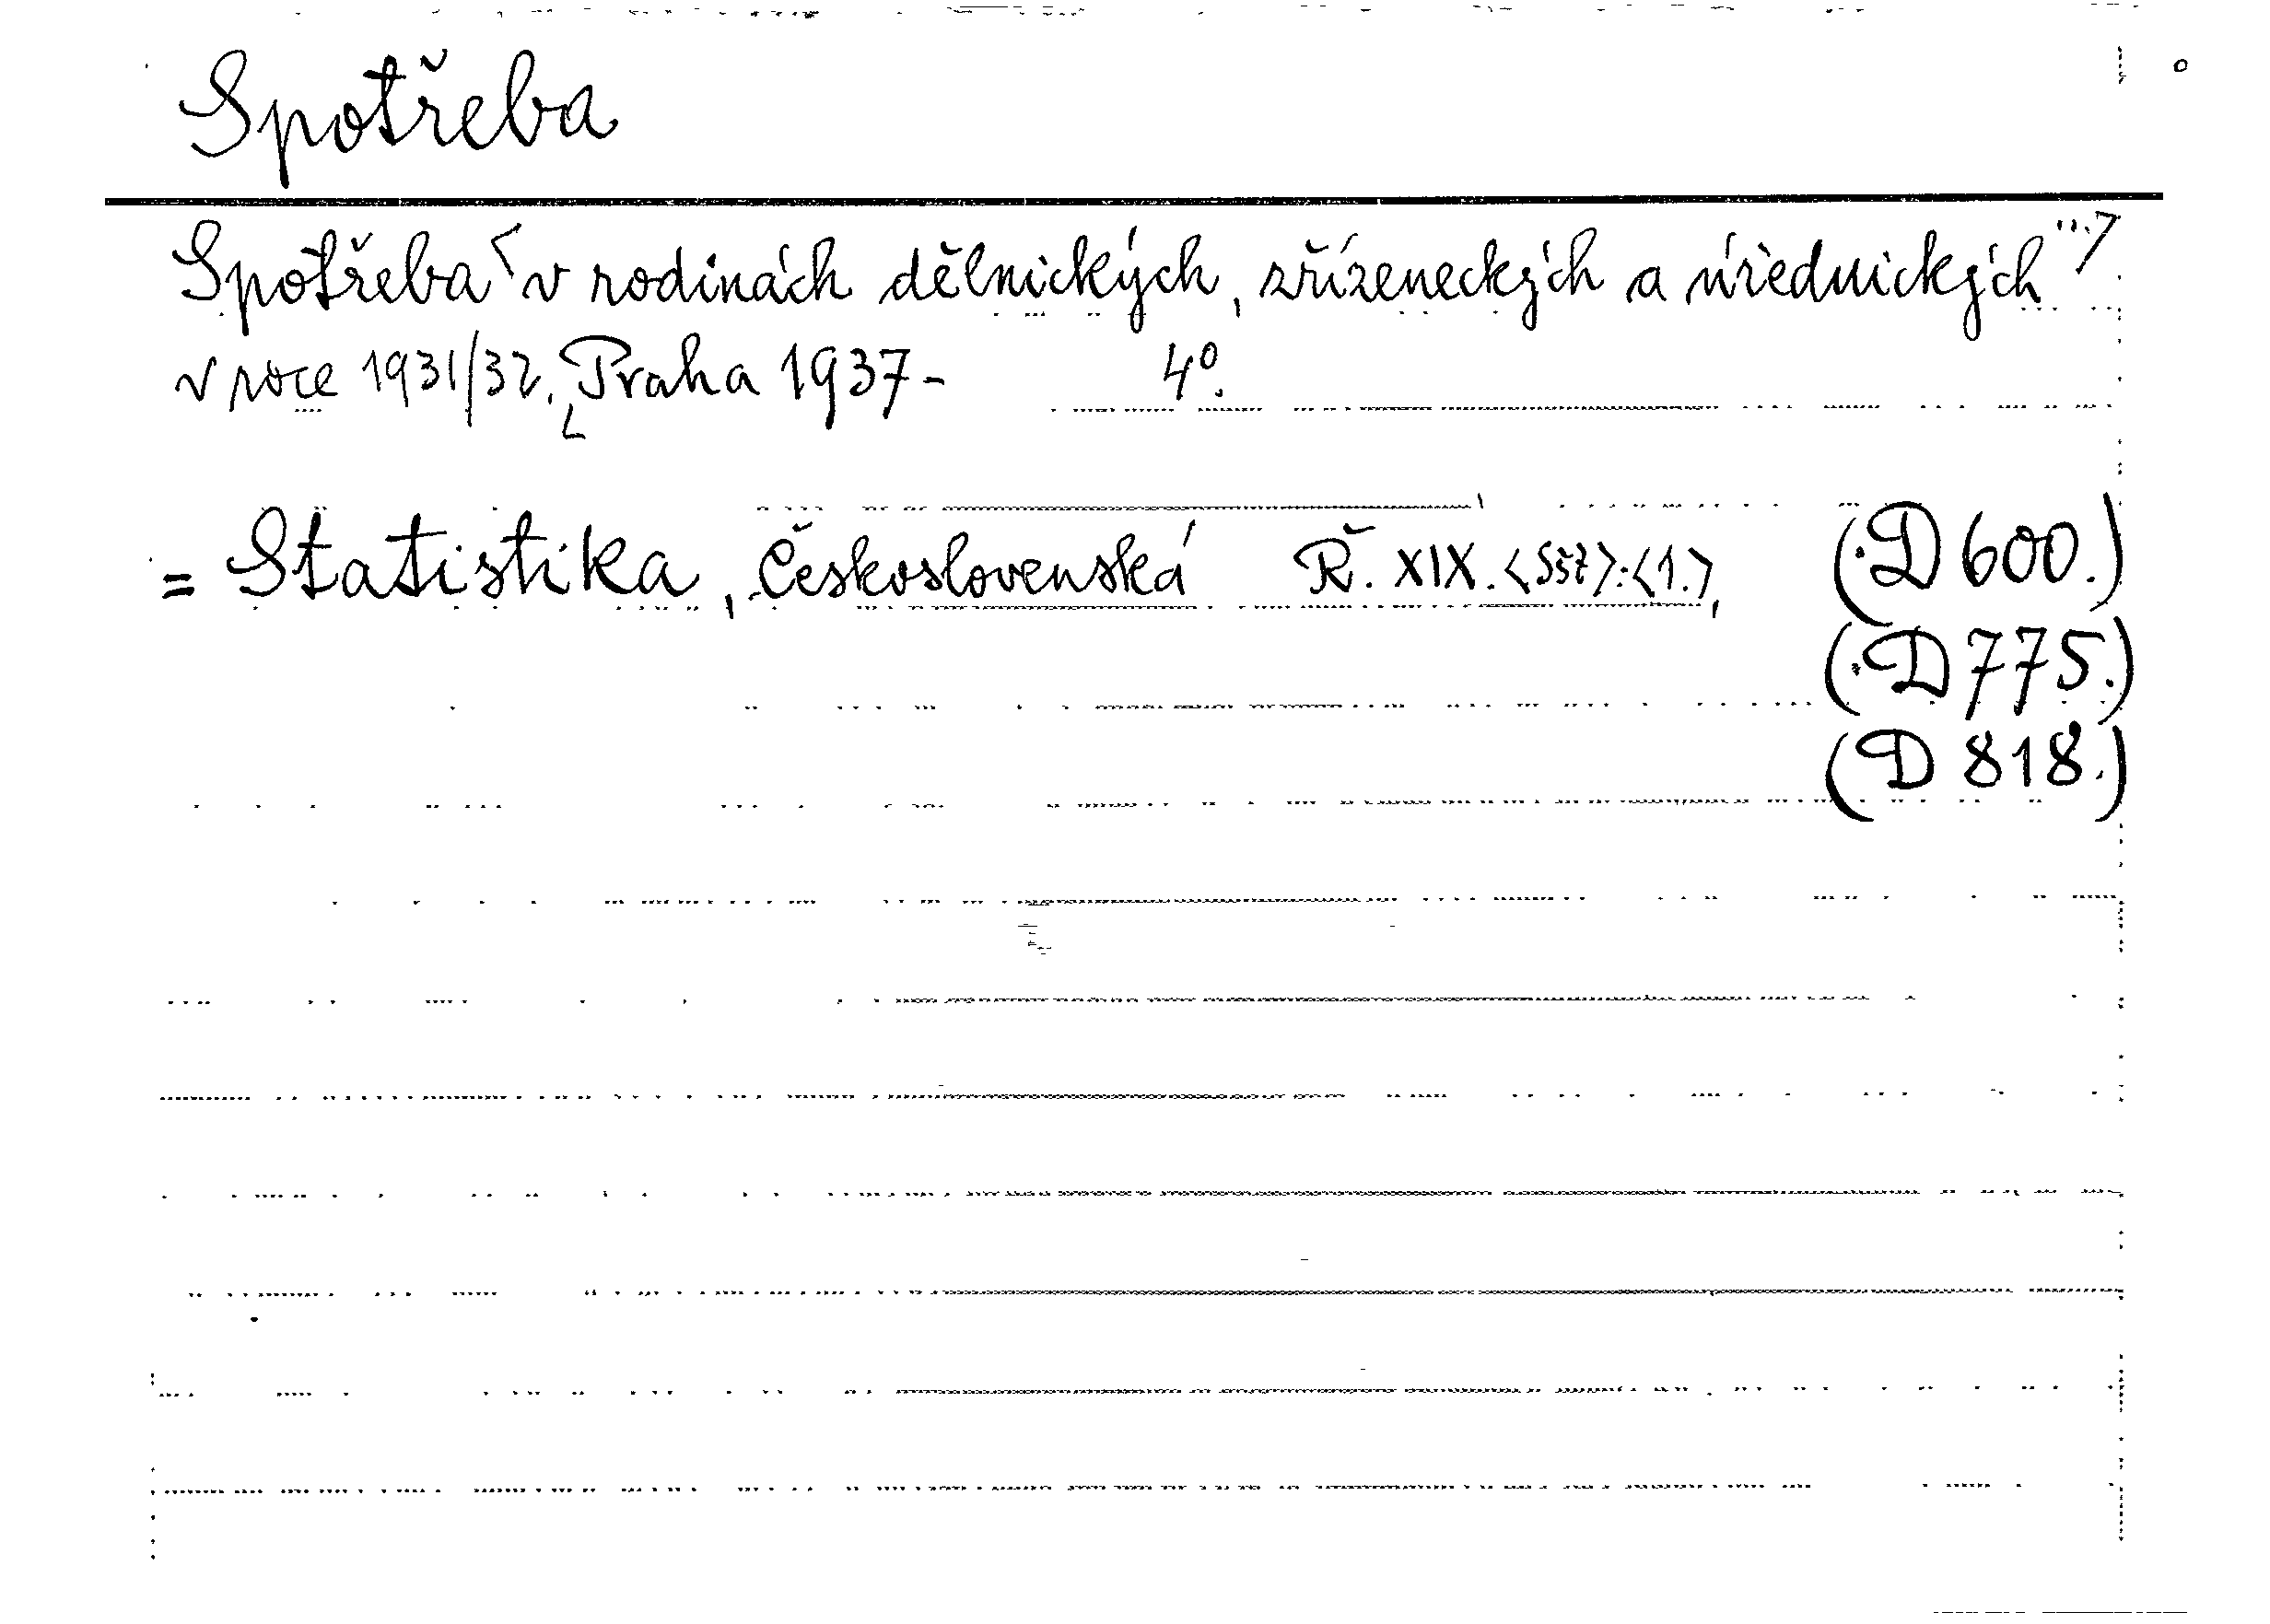 Spotřeba
Spotřeba < v rodinách dělnických, zřízeneckých a úřednických ...>
v roce 1931/32. Praha 1937- 4º.
= Statistika, Československá Ř. XIX. <Sšt>:<1.>, (D 600.)
(D 775.)
(D 818.)